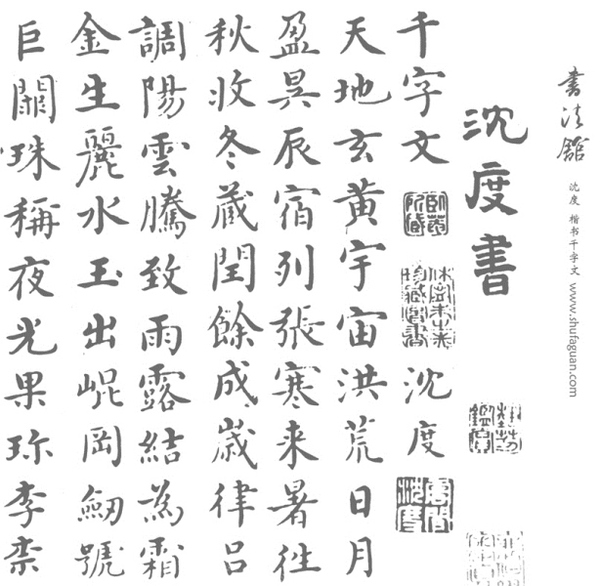 書法館
沈度 楷书千字文 www.shufaguan.com
沈度書
千字文
臥菴所藏
休寧朱之赤珍藏圖書
沈度
天地玄黄宇宙洪荒日月
盈昃辰宿列張寒来暑徃
秋收冬蔵閏餘成歲律吕
調陽雲騰致雨露結為霜
金生麗水玉出崐岡劒號
巨闕珠稱夜光果珎李柰